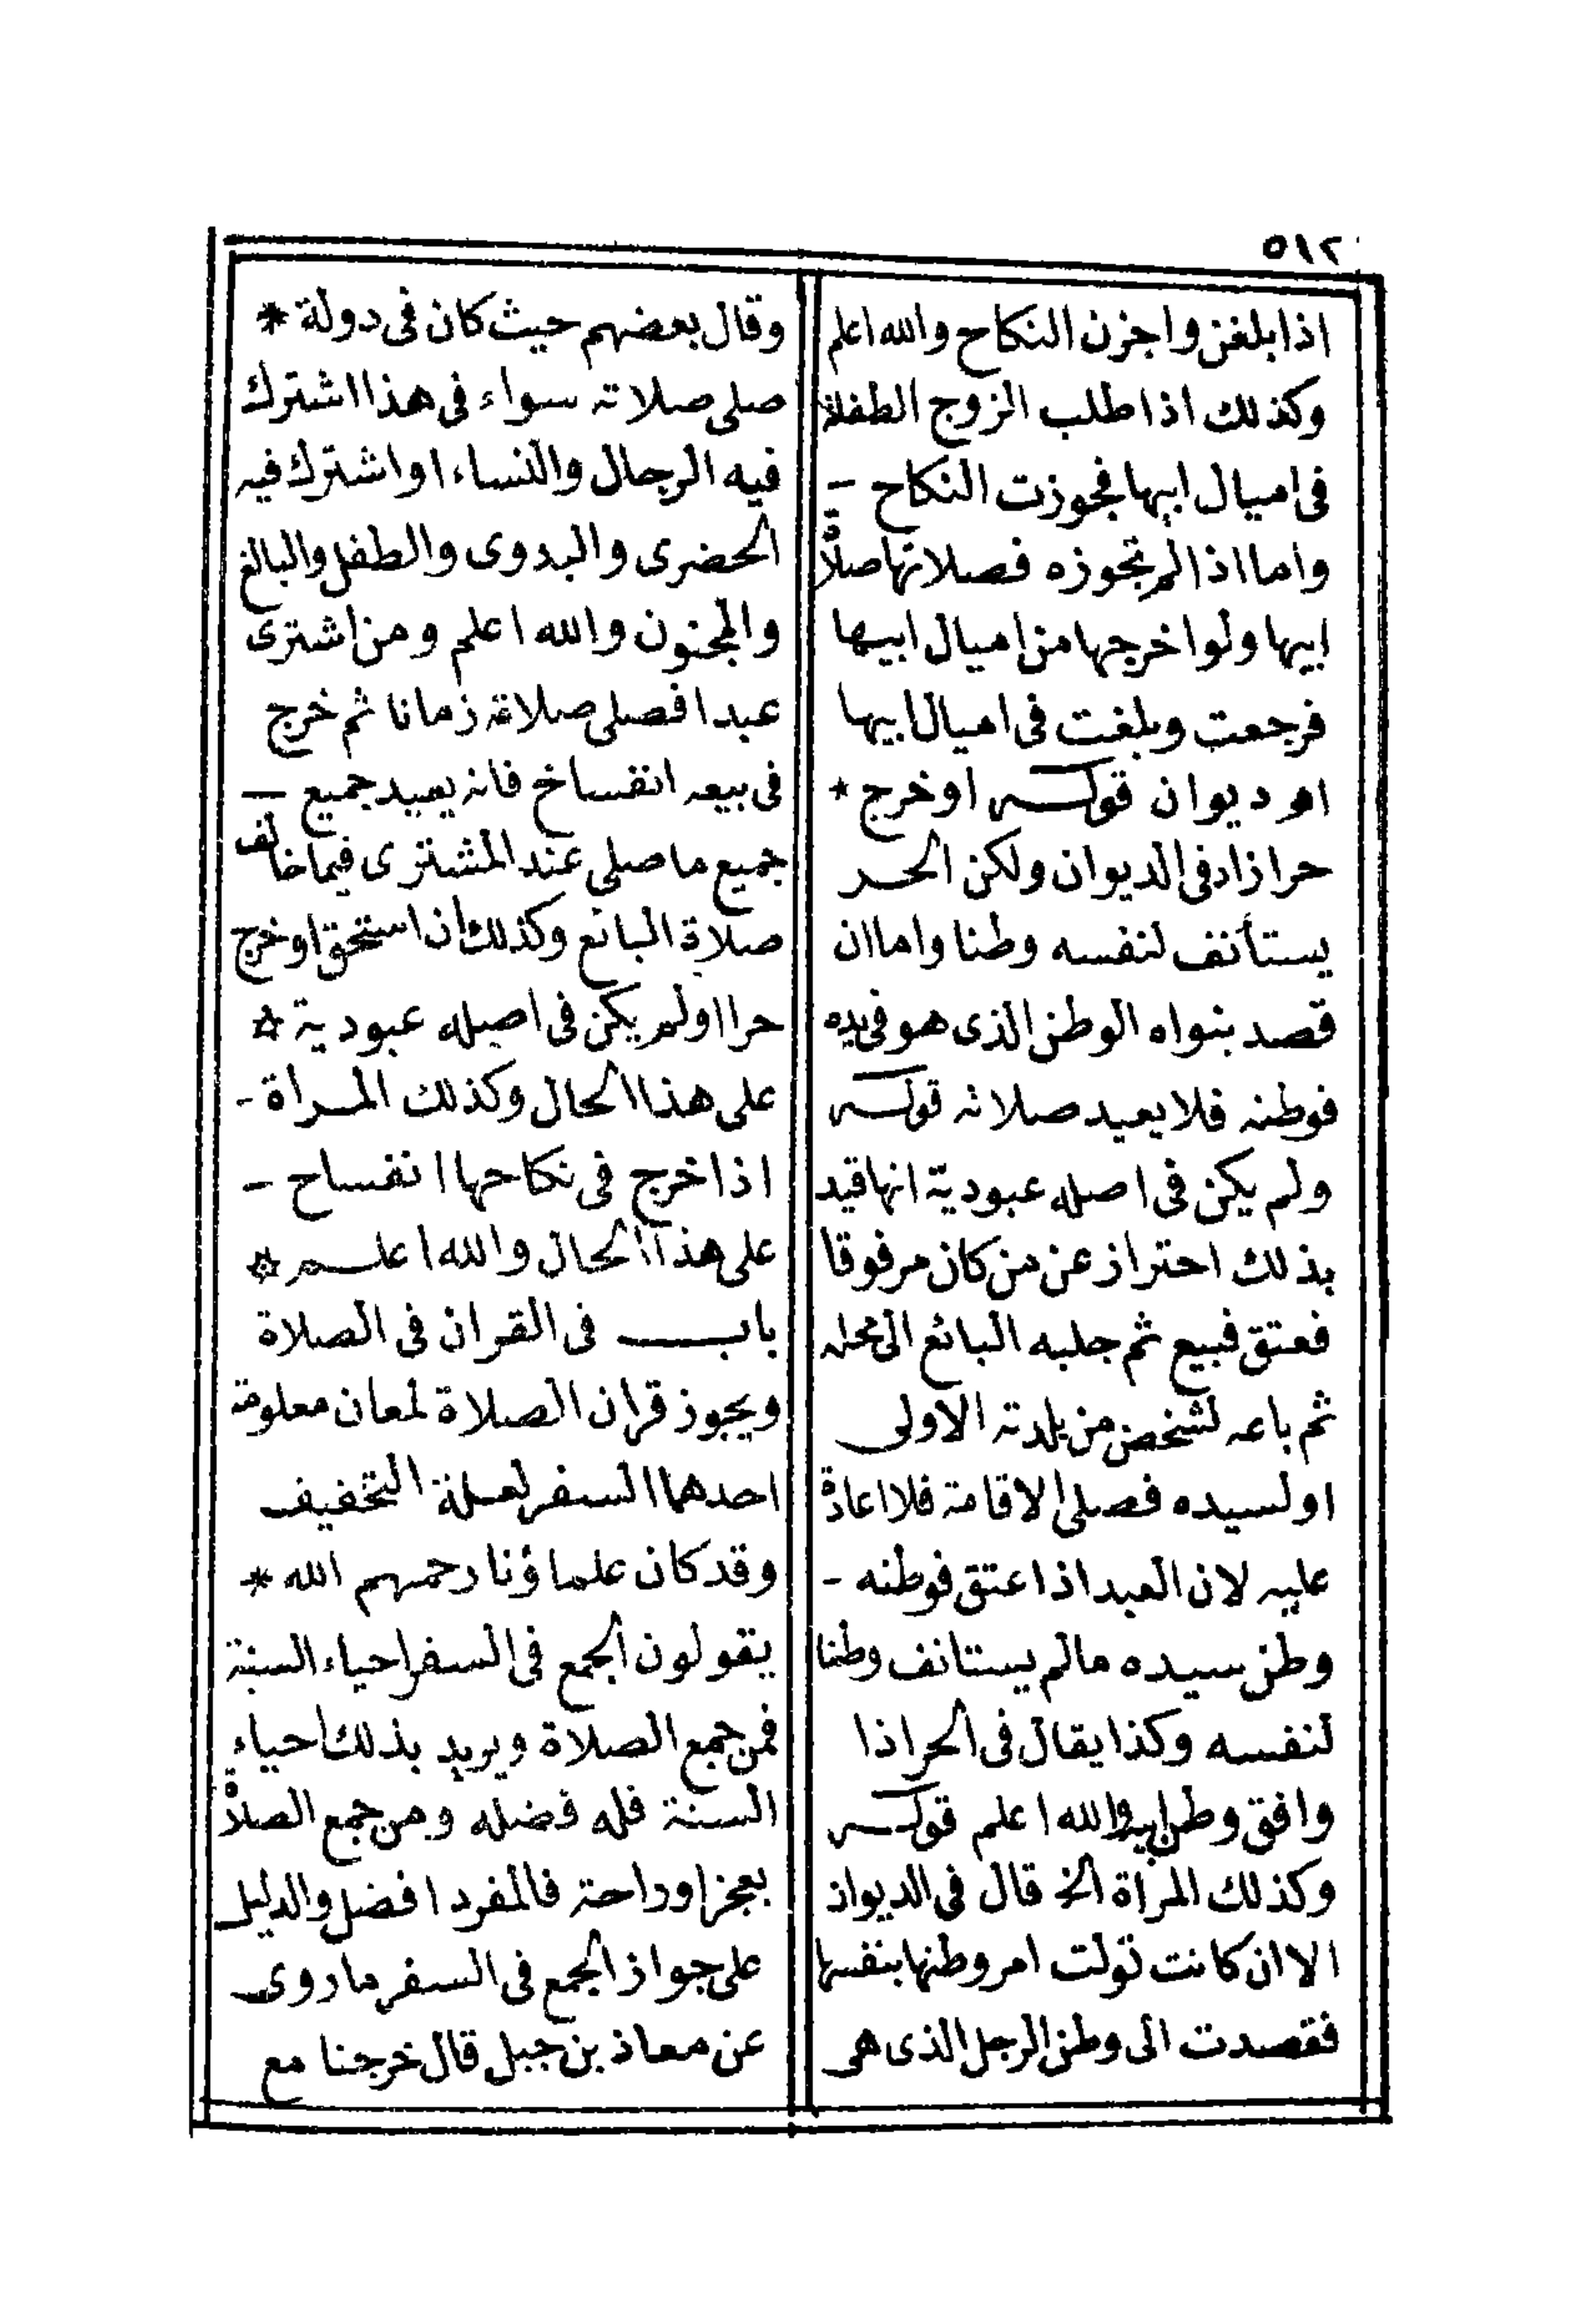 ٥١٢
اذا بلغن واجزن النكاح والله اعلم
وكذلك اذا طلب الزوج الطفلة
فى اميال ابيها فجوزت النكاح -
واما اذا لم تجوزه فصلاتها صلاة
ابيها ولو اخرجها من اميال ابيها
فرجعت وبلغت فى اميال ابيها
اهـ ديوان قولـه او خرج *
حرا زاد فى الديوان ولكن الحر
يستأنف لنفسه وطنا واما ان
قصد بنواه الوطن الذى هو فى يده
فوطنه فلا يعيد صلاته قولـه
ولم يكن فى اصله عبودية انها قيد
بذلك احتراز عن من كان مرقوقا
فعتق فبيع ثم جلبه البائع الى محله
ثم باعه لشخص من بلدته الاولى
او لسيده فصلى الاقامة فلا اعادة
عليه لان العبد اذا عتق فوطنه -
وطن سيده مالم يستانف وطنا
لنفسه وكذا يقال فى الحر اذا
وافق وطن ابيه والله اعلم قولـه
وكذلك المرأة الخ قال فى الديوان
الا ان كانت تولت امر وطنها بنفسها
فقصدت الى وطن الرجل الذى هى
وقال بعضهم حيث كان فى دولة *
صلى صلاته سواء فى هذا اشترك
فيه الرجال والنساء او اشترك فيه
الحضرى والبدوى والطفل والبالغ
والمجنون والله اعلم ومن اشترى
عبدا فصلى صلاته زمانا ثم خرج
فى بيعه انفساخ فانه يعيد جميع -
جميع ما صلى عند المشترى فيما خالف
صلاة البائع وكذلك ان استحق او خرج
حرا او لم يكن فى اصله عبودية *
على هذا الحال وكذلك المرأة -
اذا خرج فى نكاحها انفساح -
على هذا الحال والله اعلم *
باب فى القران فى الصلاة
ويجوز قران الصلاة لمعان معلومة
احدهما السفر لعلة التخفيف
وقد كان علماؤنا رحمهم الله *
يقولون الجمع فى السفر احياء السنة
فمن جمع الصلاة ويريد بذلك احياء
السنة فله فضله ومن جمع الصلاة
بعجز او راحة فالمفرد افضل والدليل
على جواز الجمع فى السفر ما روى
عن معاذ بن جبل قال خرجنا مع